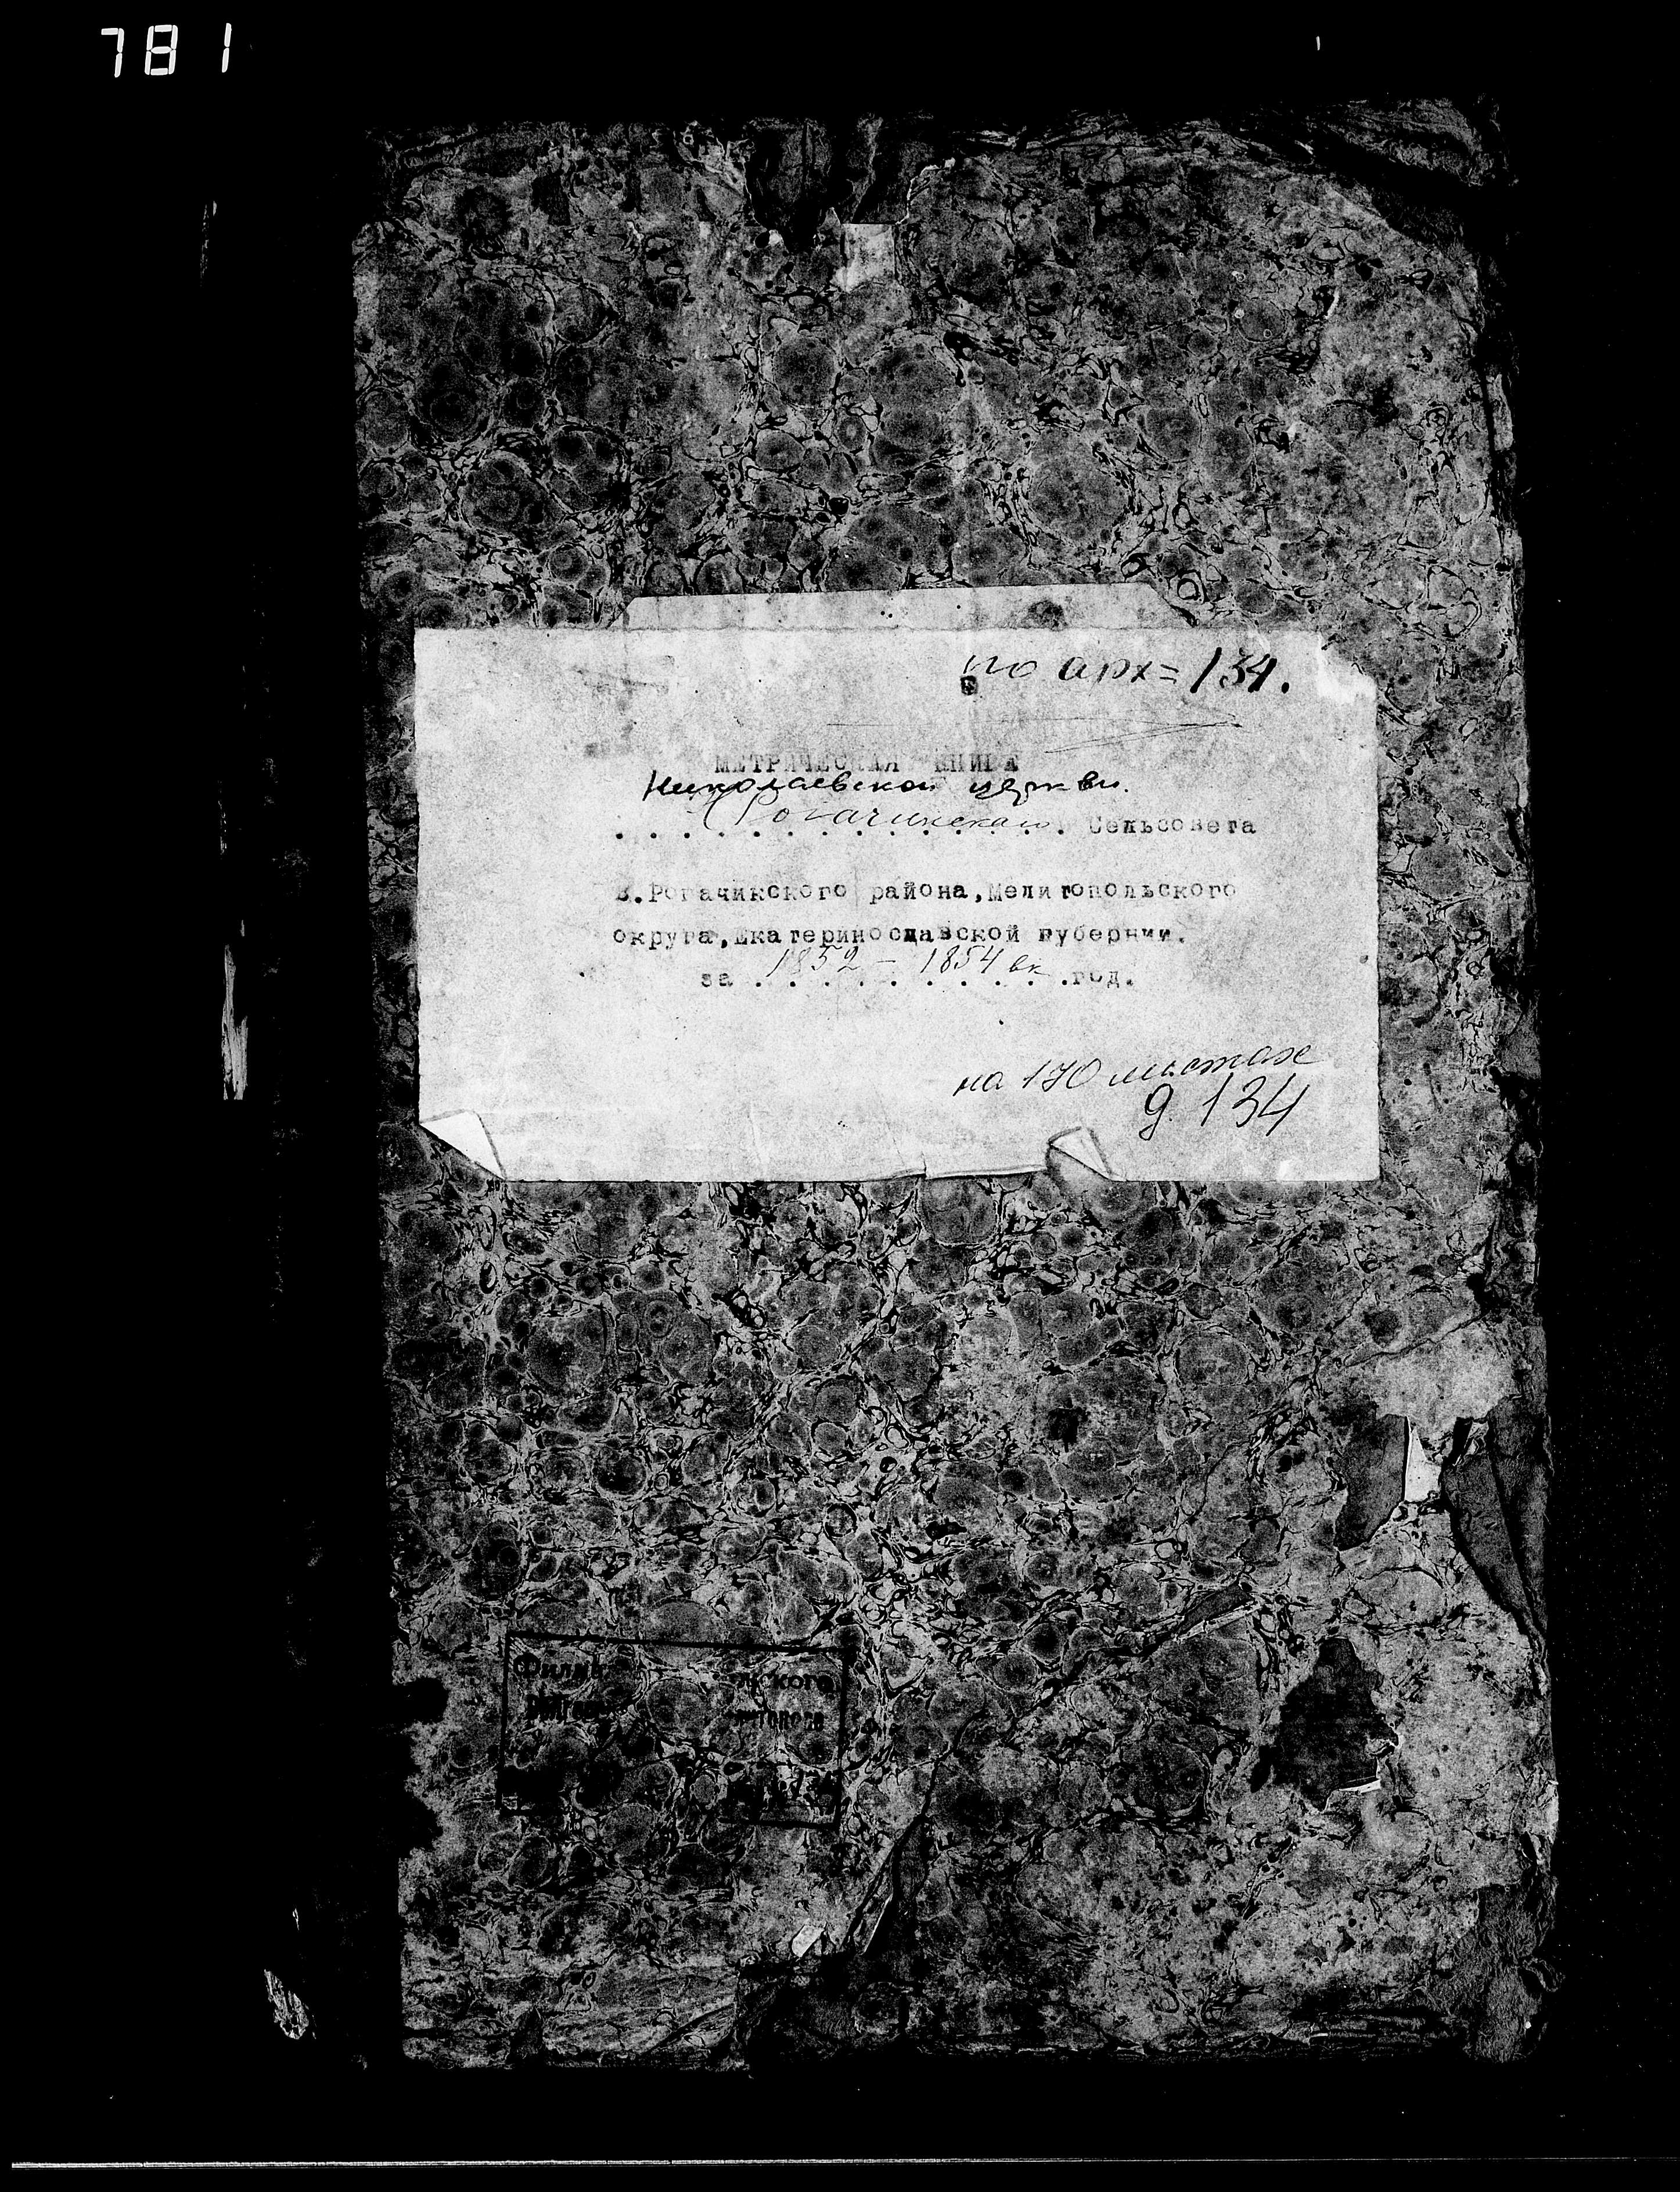 781
по арх=134.
МЕТРИЧЕСКАЯ КНИГА
Николаевской церкви.
Рогачикскаго. Сельсовета
В.Рогачикского района,Мелитопольского
округа,Екатеринославской губернии.
за 1852 - 1854 вк .год.
на 170 листах
д. 134
Фили
ского